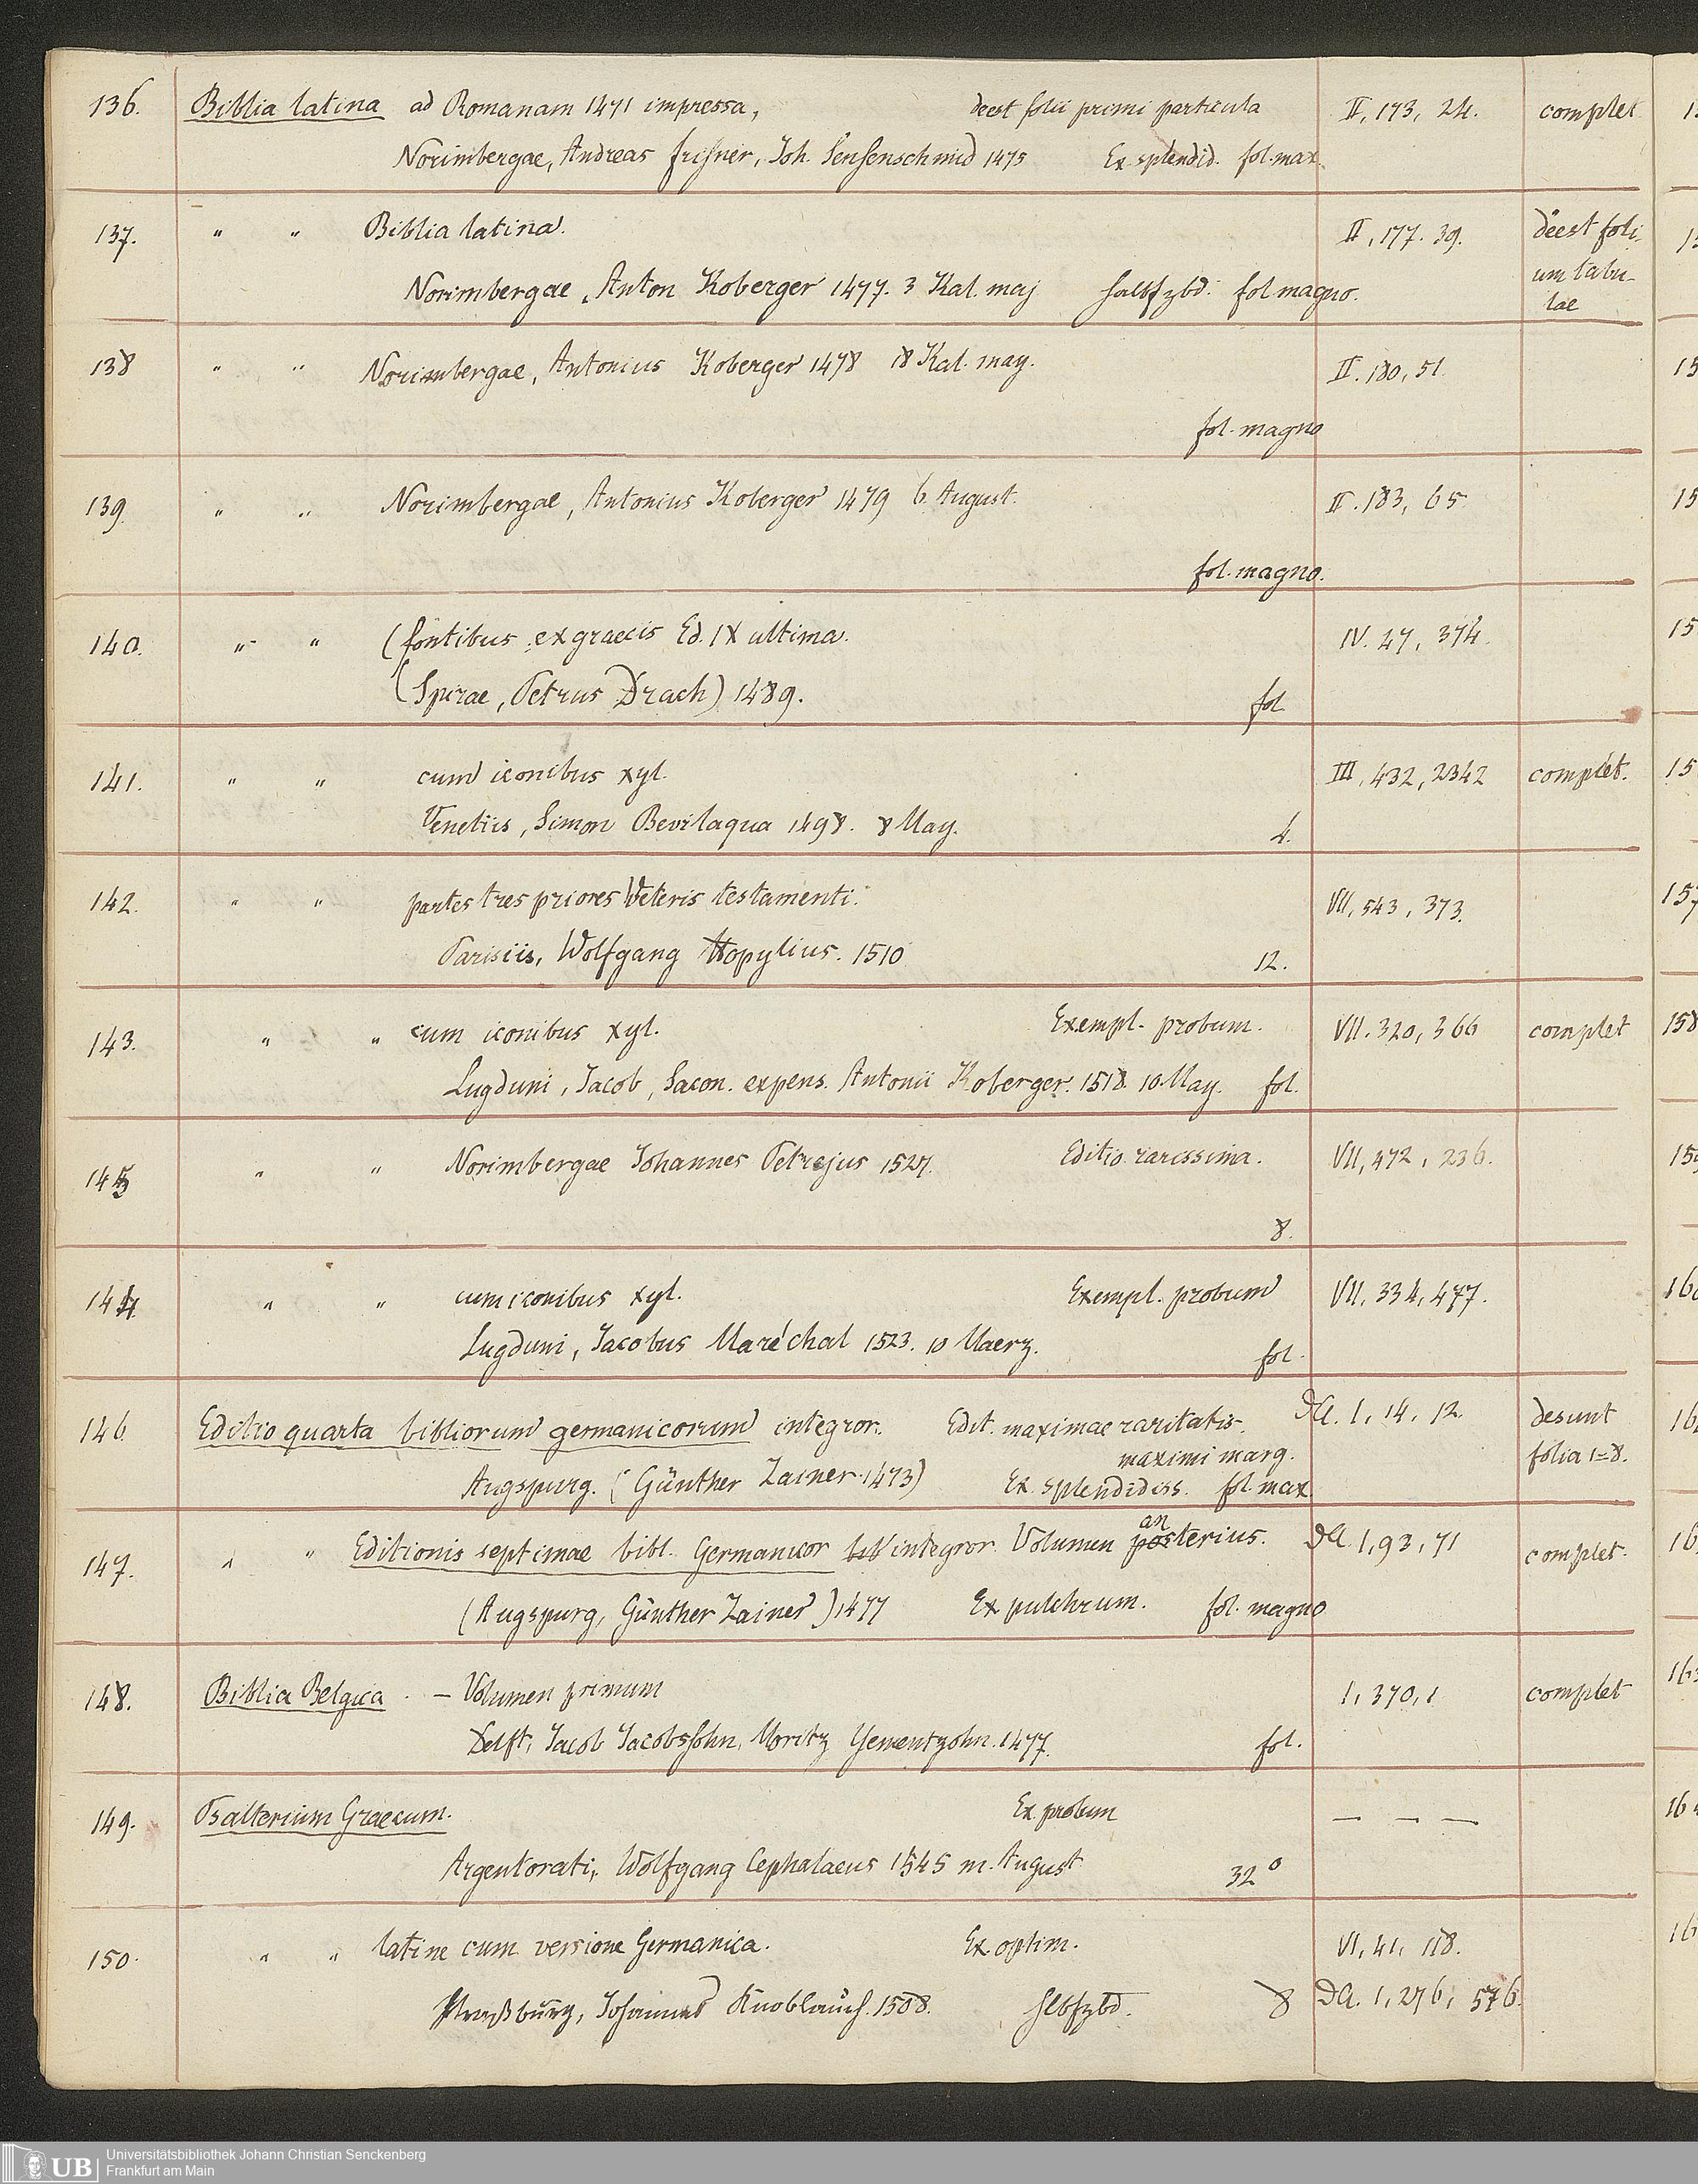 136. Biblia latina ad Romanam 1471 impressa, deest folii primi particula II, 173, 24. complet
Norimbergae, Andreas Frisner, Joh. Sensenschmid 1475 Ex. splendid. fol. max.
137. " " Biblia latina. II, 177. 39. deest foli-
Norimbergae, Anton Koberger 1477. 3 Kal. maj Halbfzbd. fol magno. um tabu-
lae
138 " " Norimbergae, Antonius Koberger 1478 18 Kal. may. II. 180, 51.
fol. magno
139. " " Norimbergae, Antonius Koberger 1479 6 August. II. 183, 65
fol. magno.
140. " " (fontibus ex graecis Ed. IX ultima. IV. 27, 374.
(Spirae, Petrus Drach) 1489. fol
141. " " cum iconibus xyl. III, 432, 2342 complet.
Venetiis, Simon Bevilaqua 1498. 8 May. 4.
142. " " partes tres priores Veteris testamenti. VII, 543, 373.
Parisiis, Wolfgang Hopylius. 1510 12.
143. " " cum iconibus xyl. Exempl. probum. VII. 320, 366 complet
Lugduni, Jacob, Sacon. expens. Antonii Koberger. 1518. 10 May. fol.
145 " " Norimbergae Johannes Petrejus 1527. Editio rarissima. VII, 472, 236.
8.
144. " " cum iconibus xyl. Exempl. probum VII. 334, 477.
Lugduni, Jacobus Maréchal 1523. 10 Maerz. fol.
146. Editio quarta bibliorum germanicorum integror. Edit. maximae raritatis. DA. 1, 14, 12. desunt
maximi marg. folia 1=8.
Augspurg. (Günther Zainer 1473) Ex. splendidiss. fol. max.
an
147. " " Editionis septimae bibl. Germanicor integror. Volumen posterius. DA. 1, 93, 71 complet.
(Augspurg, Günther Zainer) 1477 Ex pulchrum. fol. magno
148. Biblia Belgica. — Volumen primum 1, 370, 1 complet
Delft, Jacob Jacobssohn, Moritz Yementzohn. 1477. fol.
149. Psalterium Graecum. Ex. probum — — —
Argentorati, Wolfgang Cephalaeus 1545 m. August 32°
150. " " latine cum versione Germanica. Ex. optim. VI, 41, 118.
Straßburg, Johannes Knoblauch. 1508. Hlbfzbd. 8 DA. 1, 276, 576.
Universitätsbibliothek Johann Christian Senckenberg
UB Frankfurt am Main